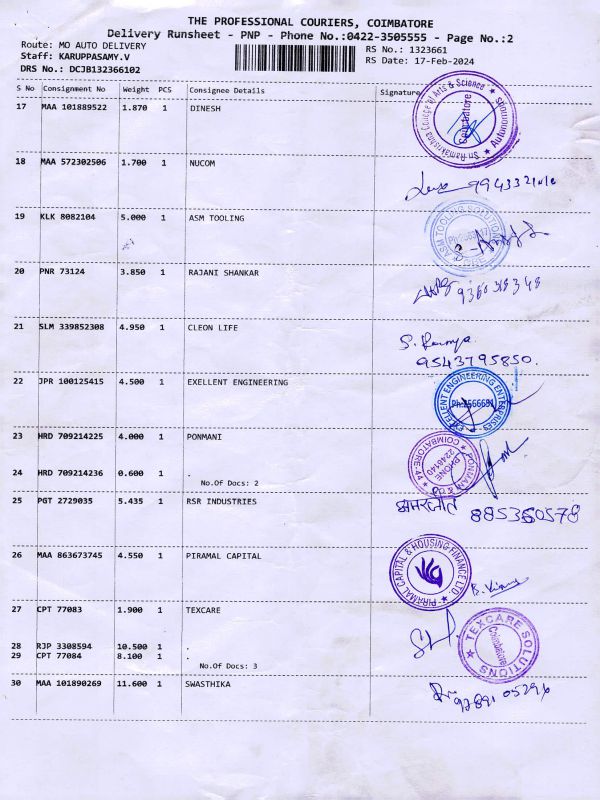 THE PROFESSIONAL COURIERS, COIMBATORE
Delivery Runsheet - PNP - Phone No.:0422-3505555 - Page No.:2
Route: MO AUTO DELIVERY
RS No.: 1323661
Staff: KARUPPASAMY.V
RS Date: 17-Feb-2024
DRS No.: DCJB132366102
S No Consignment No Weight PCS Consignee Details Signature
17 MAA 101889522 1.870 1 DINESH
Sri Ramakrishna College of Arts & Science
Coimbatore
Autonomous
18 MAA 572302506 1.700 1 NUCOM
19 KLK 8082104 5.000 1 ASM TOOLING
ASM TOOLING SOLUTION
20 PNR 73124 3.850 1 RAJANI SHANKAR
21 SLM 339852308 4.950 1 CLEON LIFE
S. Ramya
9543795850.
22 JPR 100125415 4.500 1 EXELLENT ENGINEERING
EXELLENT ENGINEERING ENTERPRISES
Ph:2566651
23 HRD 709214225 4.000 1 PONMANI
PHONE
2246140
24 HRD 709214236 0.600 1 .
No.Of Docs: 2
25 PGT 2729035 5.435 1 RSR INDUSTRIES
अमरजीत 885360578
26 MAA 863673745 4.550 1 PIRAMAL CAPITAL
PIRAMAL CAPITAL & HOUSING FINANCE LTD
27 CPT 77083 1.900 1 TEXCARE
TEXCARE SOLUTIONS
Coimbatore
28 RJP 3308594 10.500 1 .
29 CPT 77084 8.100 1 .
No.Of Docs: 3
30 MAA 101890269 11.600 1 SWASTHIKA
97891 05296